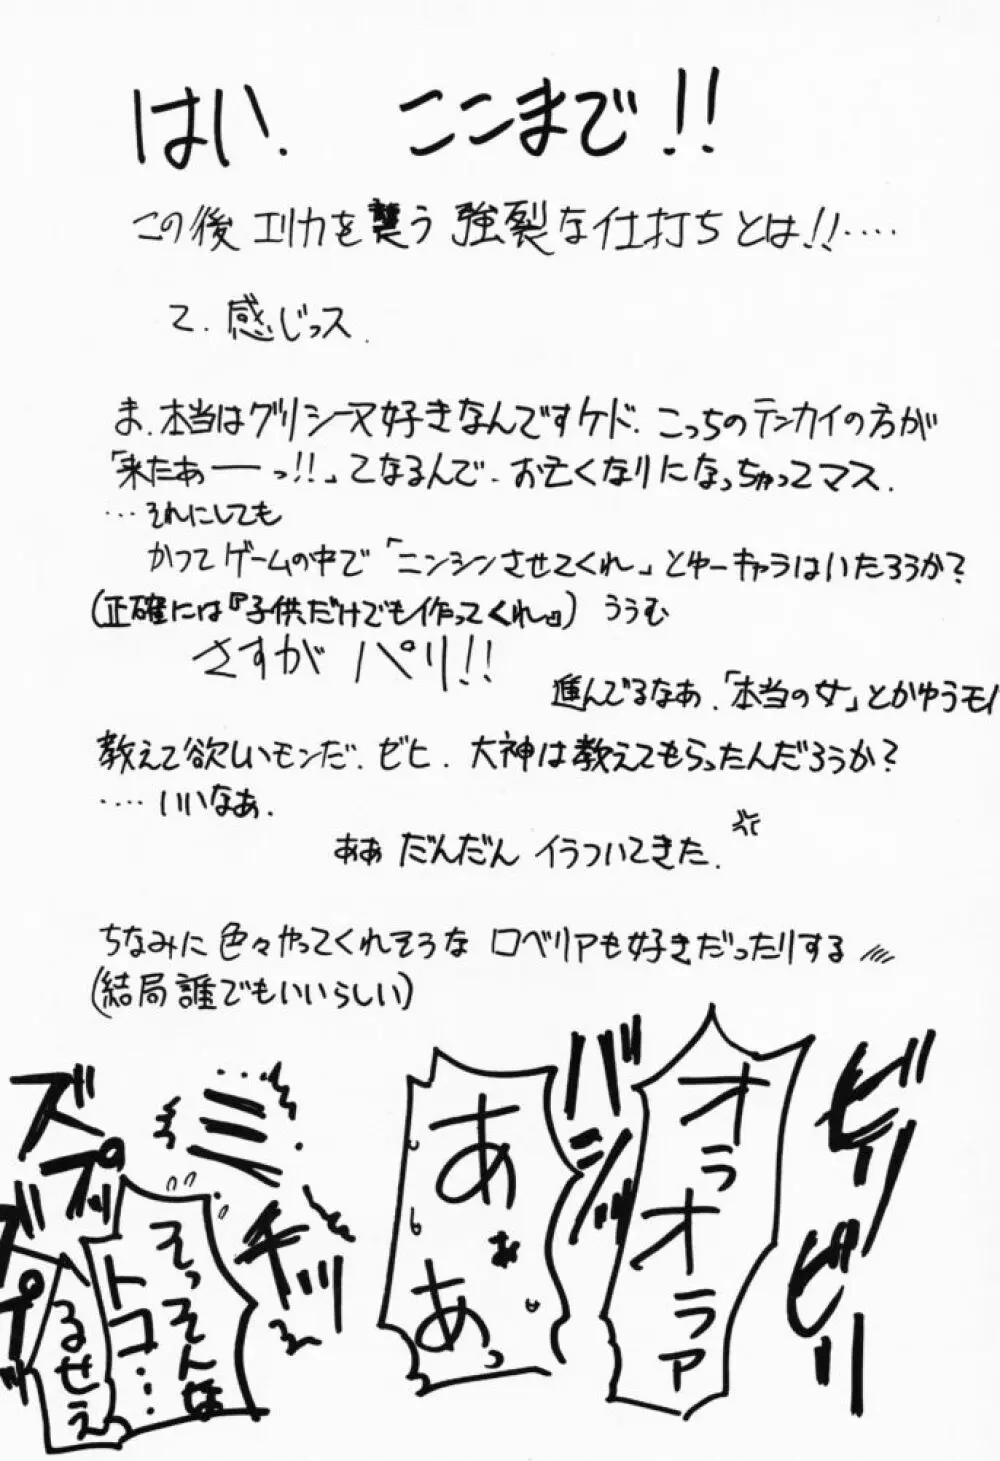 はい、ここまで!!
この後エリカを襲う強裂な仕打ちとは!!‥‥
て、感じっス.
ま、本当はグリシーヌ好きなんですケド、こっちのテンカイの方が
「来たあーーっ!!」てなるんで、お亡くなりになっちゃってマス.
…それにしても
かつてゲームの中で「ニンシンさせてくれ」とゆーキャラはいたろうか?
(正確には『子供だけでも作ってくれ』) ううむ
さすが パリ!!
進んでるなあ.「本当の女」とかゆうモノ
教えて欲しいモンだ、ゼヒ. 大神は教えてもらったんだろうか?
‥‥いいなあ.
ああ だんだん イラついてきた.
ちなみに色々やってくれそうな ロベリアも好きだったりする
(結局誰でもいいらしい)
ビリ
ビリ
オラオラァ
バシッ
あぁあっ
ミチッ
ズプ
ズプ
そっそんな
トコ…
るせえ